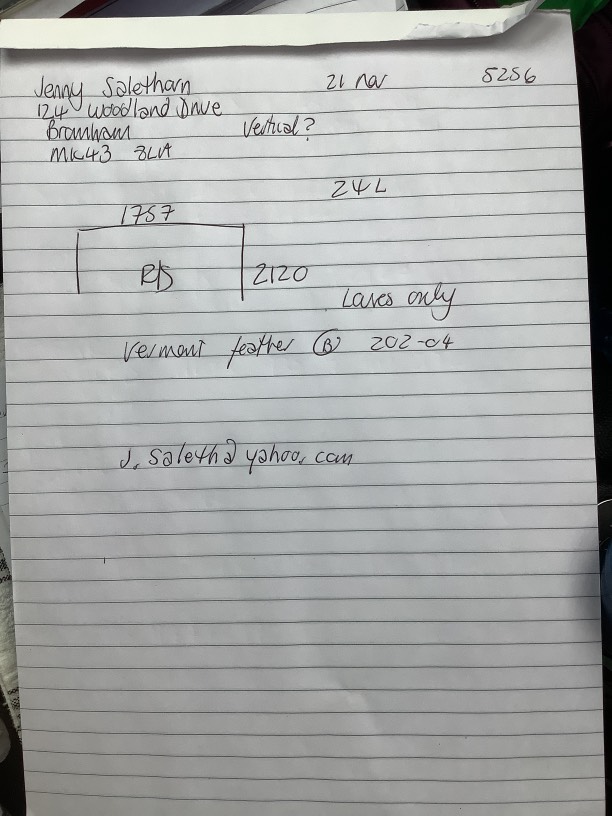 Jenny Saletham 21 Nov 5256
124 Woodland Drive
Bromham Vertical?
MK43 8LA
24L
1757
R/S 2120
Laves only
Vermont feather (B) 202-04
J.saleth@yahoo.com